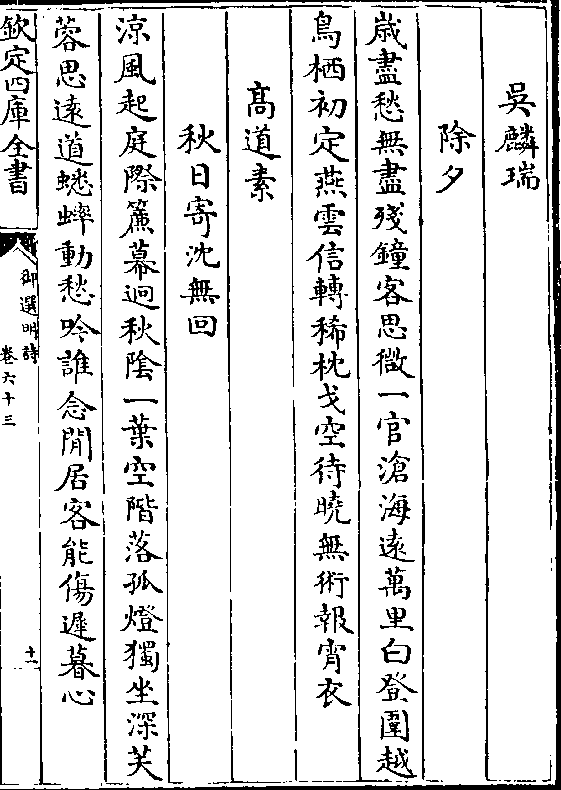 吳麟瑞
除夕
歲盡愁無盡殘鐘客思微一官滄海遠萬里白登圍越
鳥栖初定燕雲信轉稀枕戈空待曉無術報宵衣
髙道素
秋日寄沈無回
涼風起庭際簾幕迥秋陰一葉空階落孤燈獨坐深芙
蓉思遠道蟋蟀動愁吟誰念閒居客能傷遲暮心
欽定四庫全書
御選明詩
卷六十三
十一